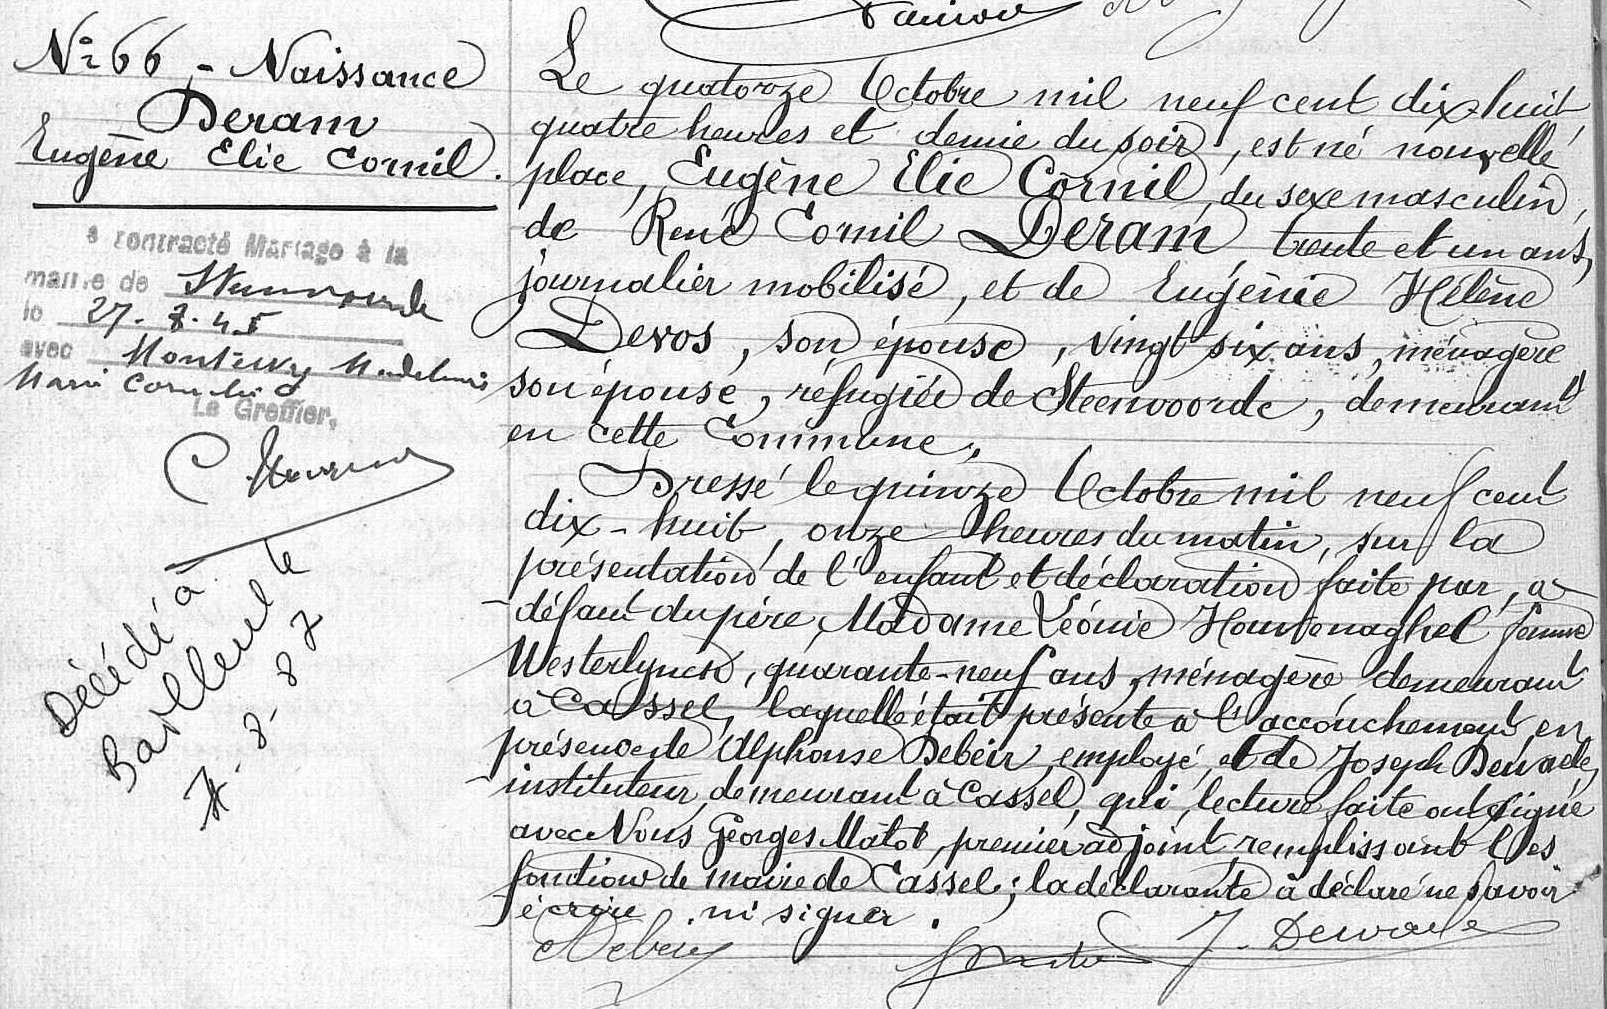 N° 66 - Naissance
Deram
Eugène Elie Cornil.
a contracté Mariage à la
mairie de Steenvoorde
le 27. 8. 45
avec
Le Greffier,
Décédé à
Bailleul le
4-8-87
Le quatorze Octobre mil neuf cent dix huit
quatre heures et demie du soir, est né nouvelle
place, Eugène Elie Cornil, du sexe masculin,
de René Cornil Deram, trente et un ans,
journalier mobilisé, et de Eugénie Hélène
Devos, son épouse, vingt six ans, ménagère
son épouse, réfugiée de Steenvoorde, demeurant
en cette Commune.
Dressé le quinze Octobre mil neuf cent
dix-huit, onze heures du matin, sur la
présentation de l'enfant et déclaration faite par, à
défaut du père, Madame Léonie Houvenaghel femme
Westerlynck, quarante-neuf ans, ménagère demeurant
à Cassel, laquelle était présente à l'accouchement, en
présence de Alphonse Debeir, employé, et de Joseph Dewaele,
instituteur, demeurant à Cassel, qui, lecture faite ont signé
avec Nous Georges Matot, premier adjoint remplissant les
fonctions de maire de Cassel; la déclarante a déclaré ne savoir
écrire ni signer.
ADebeir J. Dewaele